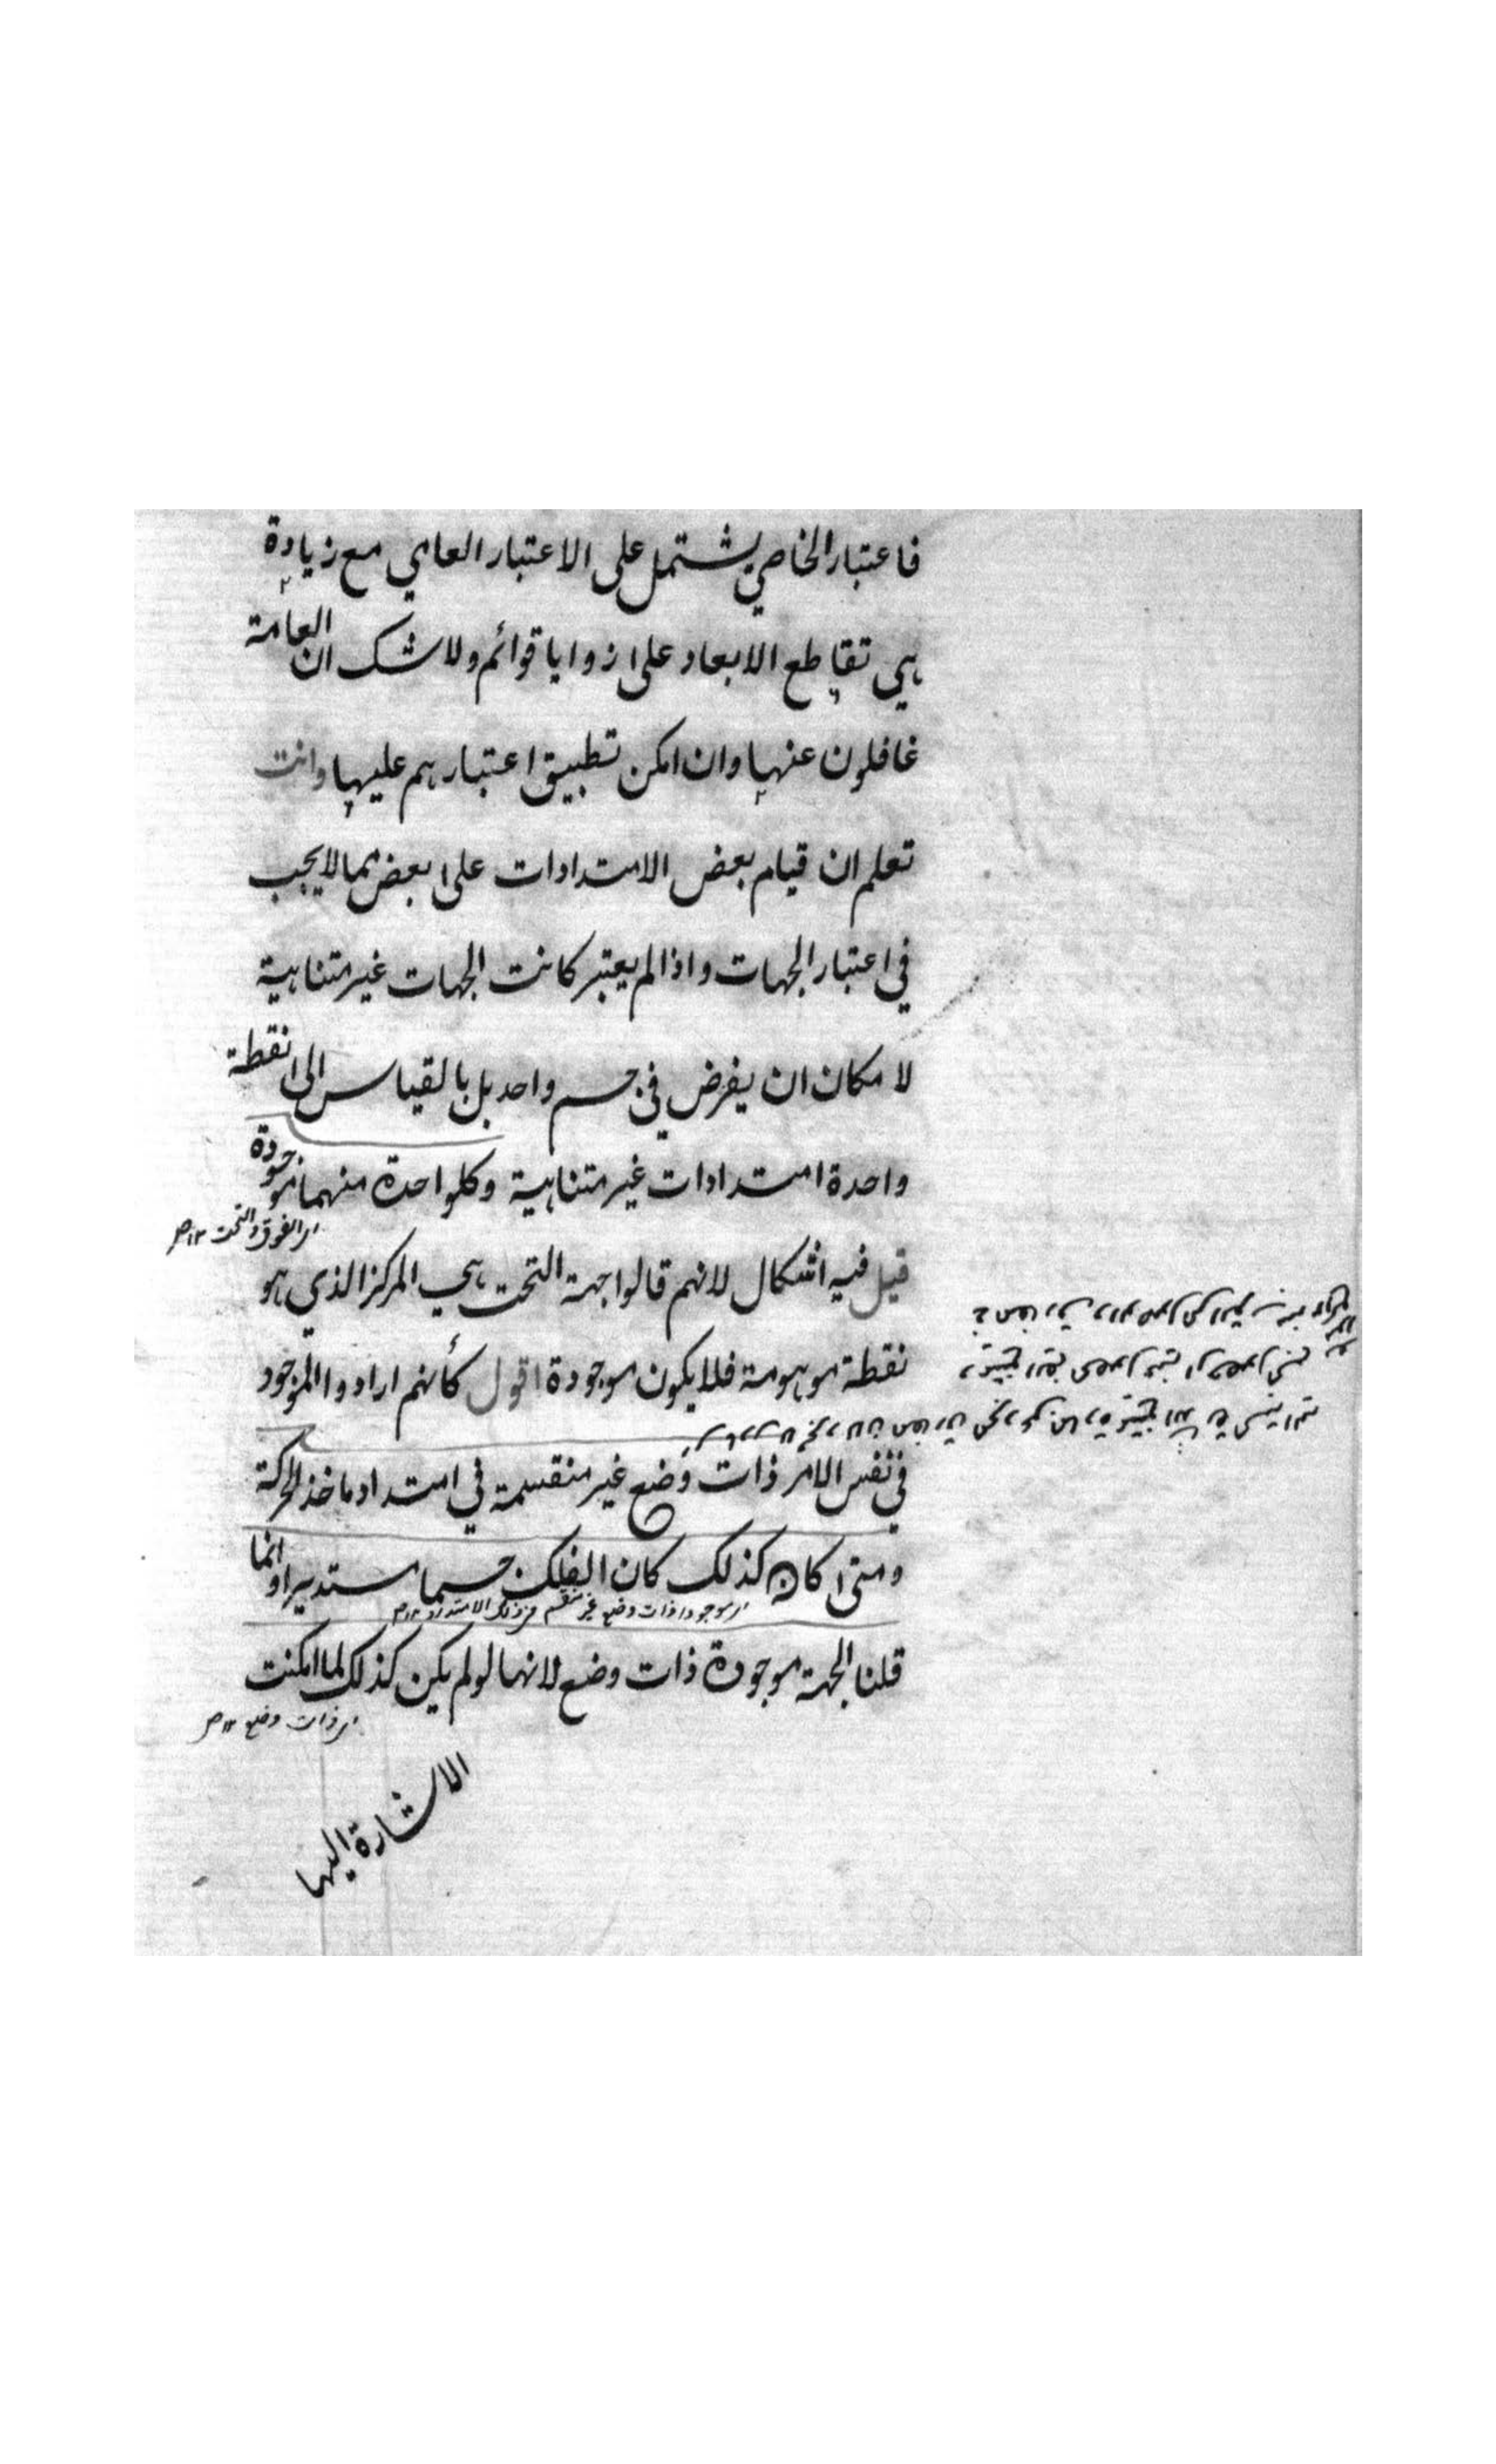 فاعتبار الخاصي يشتمل على الاعتبار العامي مع زيادة
هي تقاطع الابعاد على زوايا قوائم ولا شك ان العامة
غافلون عنها وان امكن تطبيق اعتبارهم عليها وانت
تعلم ان قيام بعض الامتدادات على بعض مما لا يجب
في اعتبار الجهات واذا لم يعتبر كانت الجهات غير متناهية
لامكان ان يفرض في جسم واحد بل بالقياس الى نقطة
واحدة امتدادات غير متناهية وكل واحدة منهما موجودة
الفوق والتحت ١٢
قيل فيه اشكال لانهم قالوا جهة التحت هي المركز الذي هو
نقطة موهومة فلا يكون موجودة اقول كأنهم ارادوا الموجود
في نفس الامر ذات وضع غير منقسمة في امتداد ماخذ الحركة
ومتى كان كذلك كان الفلك جسما مستديرا وانما
موجودا ذات وضع غير منقسم الامتداد ١٢
قلنا الجهة موجودة ذات وضع لانها لو لم يكن كذلك لما امكنت
ذات وضع ١٢
الاشارة اليها